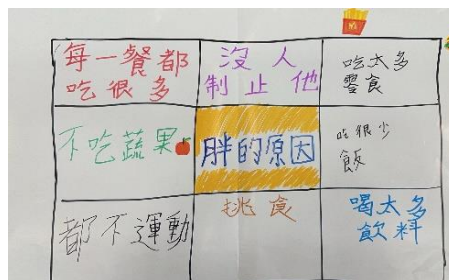 每一餐都
吃很多
沒人
制止他
吃太多
零食
不吃蔬果
胖的原因
吃很少
飯
都不運動
挑食
喝太多
飲料